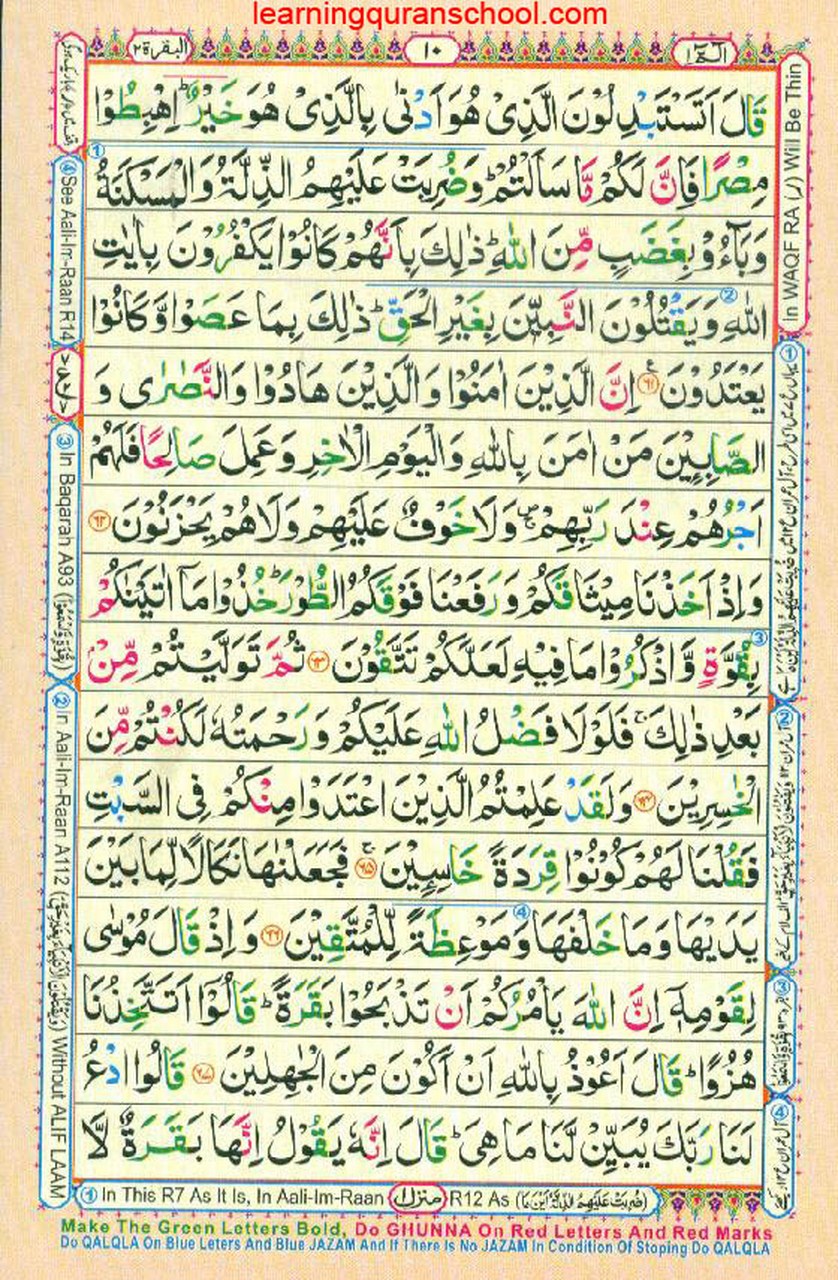 learningquranschool.com
البقرة ٢
١٠
الٓمّٓ ١
قَالَ اَتَسْتَبْدِلُوْنَ الَّذِیْ هُوَ اَدْنٰی بِالَّذِیْ هُوَ خَیْرٌ ؕ اِهْبِطُوْا
مِصْرًا فَاِنَّ لَكُمْ مَّا سَاَلْتُمْ ؕ وَضُرِبَتْ عَلَیْهِمُ الذِّلَّةُ وَالْمَسْكَنَةُ
وَبَآءُوْ بِغَضَبٍ مِّنَ اللّٰهِ ؕ ذٰلِكَ بِاَنَّهُمْ كَانُوْا یَكْفُرُوْنَ بِاٰیٰتِ
اللّٰهِ وَیَقْتُلُوْنَ النَّبِیّٖنَ بِغَیْرِ الْحَقِّ ؕ ذٰلِكَ بِمَا عَصَوْا وَّكَانُوْا
یَعْتَدُوْنَ ۠ ﴿۶۱﴾ اِنَّ الَّذِیْنَ اٰمَنُوْا وَالَّذِیْنَ هَادُوْا وَالنَّصٰرٰی وَ
الصّٰبِـِٕیْنَ مَنْ اٰمَنَ بِاللّٰهِ وَالْیَوْمِ الْاٰخِرِ وَعَمِلَ صَالِحًا فَلَهُمْ
اَجْرُهُمْ عِنْدَ رَبِّهِمْ ۪ۚ وَلَا خَوْفٌ عَلَیْهِمْ وَلَا هُمْ یَحْزَنُوْنَ ﴿۶۲﴾
وَاِذْ اَخَذْنَا مِیْثَاقَكُمْ وَرَفَعْنَا فَوْقَكُمُ الطُّوْرَ ؕ خُذُوْا مَاۤ اٰتَیْنٰكُمْ
بِقُوَّةٍ وَّاذْكُرُوْا مَا فِیْهِ لَعَلَّكُمْ تَتَّقُوْنَ ﴿۶۳﴾ ثُمَّ تَوَلَّیْتُمْ مِّنْۢ
بَعْدِ ذٰلِكَ ۚ فَلَوْلَا فَضْلُ اللّٰهِ عَلَیْكُمْ وَرَحْمَتُهٗ لَكُنْتُمْ مِّنَ
الْخٰسِرِیْنَ ﴿۶۴﴾ وَلَقَدْ عَلِمْتُمُ الَّذِیْنَ اعْتَدَوْا مِنْكُمْ فِی السَّبْتِ
فَقُلْنَا لَهُمْ كُوْنُوْا قِرَدَةً خَاسِـِٕیْنَ ۚ ﴿۶۵﴾ فَجَعَلْنٰهَا نَكَالًا لِّمَا بَیْنَ
یَدَیْهَا وَمَا خَلْفَهَا وَمَوْعِظَةً لِّلْمُتَّقِیْنَ ﴿۶۶﴾ وَاِذْ قَالَ مُوْسٰی
لِقَوْمِهٖۤ اِنَّ اللّٰهَ یَاْمُرُكُمْ اَنْ تَذْبَحُوْا بَقَرَةً ؕ قَالُوْۤا اَتَتَّخِذُنَا
هُزُوًا ؕ قَالَ اَعُوْذُ بِاللّٰهِ اَنْ اَكُوْنَ مِنَ الْجٰهِلِیْنَ ﴿۶۷﴾ قَالُوا ادْعُ
لَنَا رَبَّكَ یُبَیِّنْ لَّنَا مَا هِیَ ؕ قَالَ اِنَّهٗ یَقُوْلُ اِنَّهَا بَقَرَةٌ لَّا
In WAQF RA (ر) Will Be Thin
④ See Aali-Im-Raan R14
③ In Baqarah A93
② In Aali-Im-Raan A112 Without ALIF LAAM
① In This R7 As It Is, In Aali-Im-Raan منزل ١ R12 As (ضُرِبَتْ عَلَیْهِمُ الذِّلَّةُ اَیْنَ مَا)
Make The Green Letters Bold, Do GHUNNA On Red Letters And Red Marks
Do QALQLA On Blue Leters And Blue JAZAM And If There Is No JAZAM In Condition Of Stoping Do QALQLA